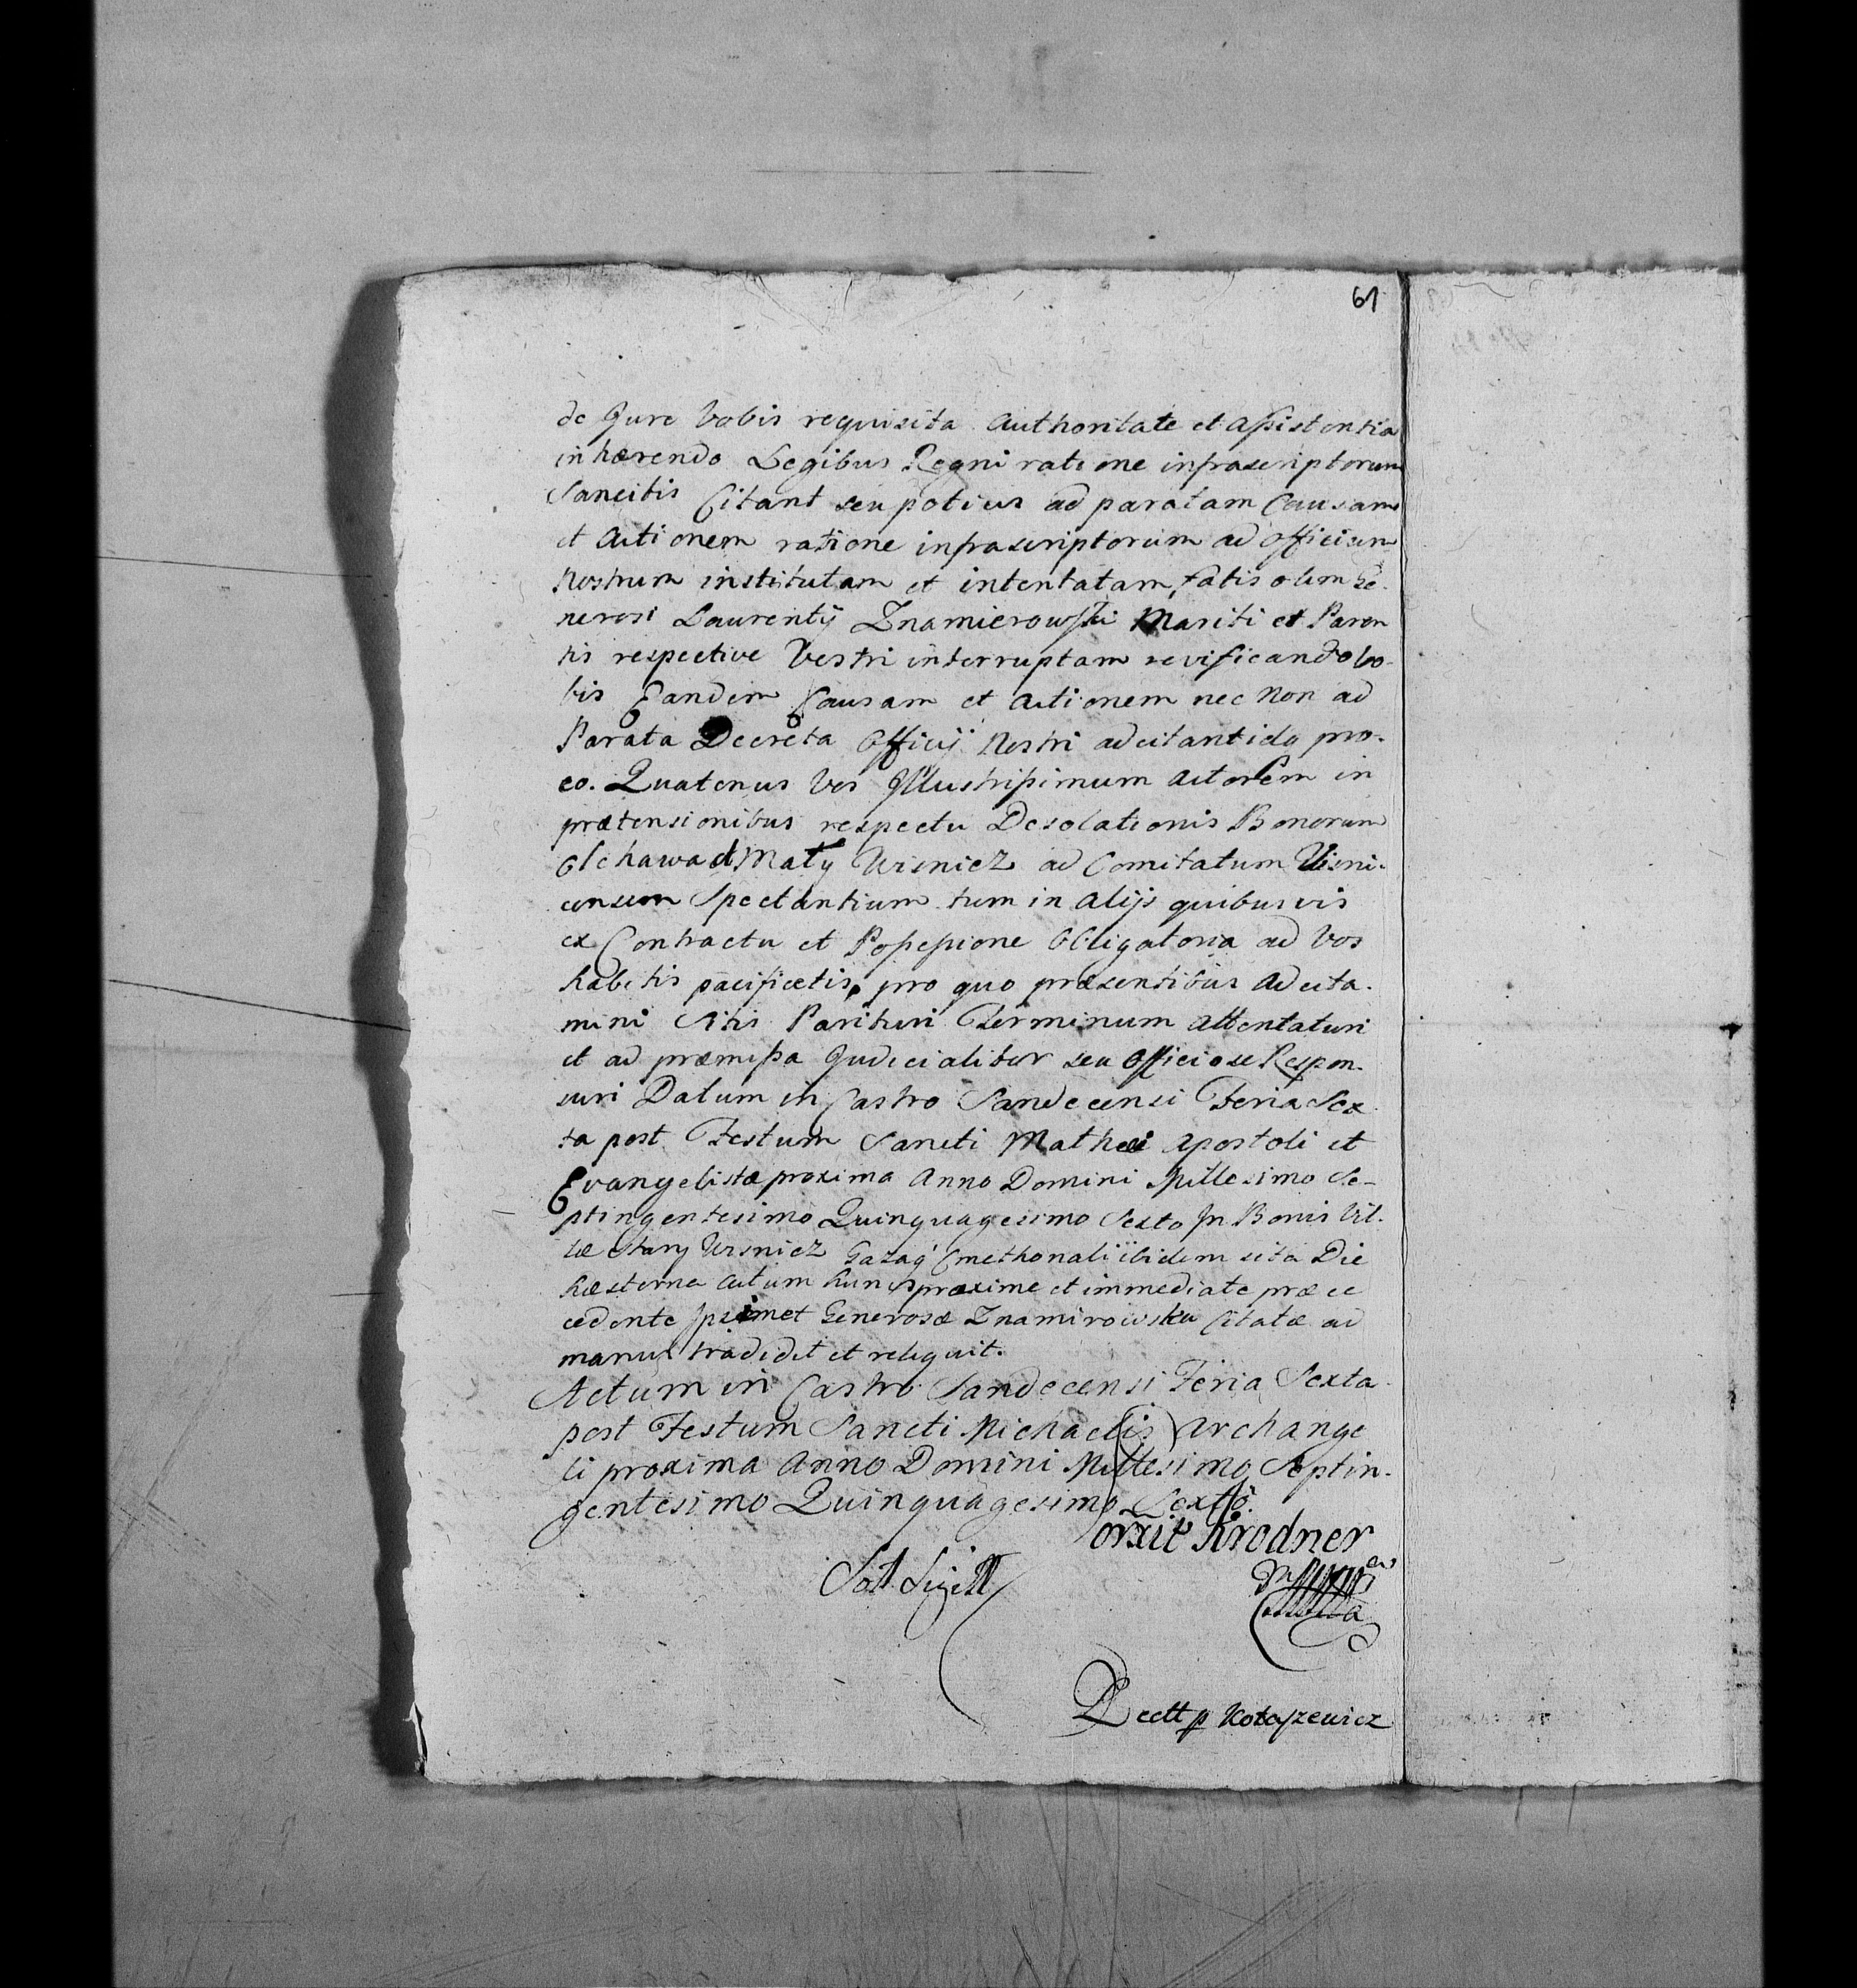 61
de Jure Vobis requisita Authoritate et Assistentia
inhærendo Legibus Regni ratione infrascriptorum
Sancitis Citant seu potius ad paratam Causam
et Actionem ratione infrascriptorum ad Officium
Nostrum institutam et intentatam, fatis olim Ge-
nerosi Laurentij Znamierowski Mariti et Paren
tis respective Vestri interruptam revificando Vo-
bis Eandem Causam et Actionem nec non ad
Parata Decreta Officij Nostri adcitant idq pro.
eo. Quatenus Vos Illustrissimum Actorem in
prætensionibus respectu Desolationis Bonorum
Olchawa et Mały Wisnicz ad Comitatum Visni-
censem Spectantium tum in alijs quibusvis
ex Contractu et Possessione Obligatoria ad Vos
habitis pacificetis, pro quo præsentibus Adcita-
mini Sitis Parituri Terminum Attentaturi
et ad præmissa Judicialiter seu Officiose Respon-
suri Datum in Castro Sandecensi Feria Sex
ta post Festum Sancti Mathæi Apostoli et
Evangelistæ proxima Anno Domini Millesimo Se-
ptingentesimo Quinquagesimo Sexto In Bonis Vil-
læ Stary Wisnicz Gazag Cmethonali ibidem sita Die
hæsterna Actum hunc proxime et immediate præ ce
cedente Ipsimet Generosæ Znamirowska Citatæ ad
manus tradidit et reliquit.
Actum in Castro Sandecensi Feria Sexta
post Festum Sancti Michaelis Archange
li proxima Anno Domini Millesimo Septin-
gentesimo Quinquagesimo Sexto.
Corxit Krodner
Sol Sigill
Lectt p Kotaszewicz